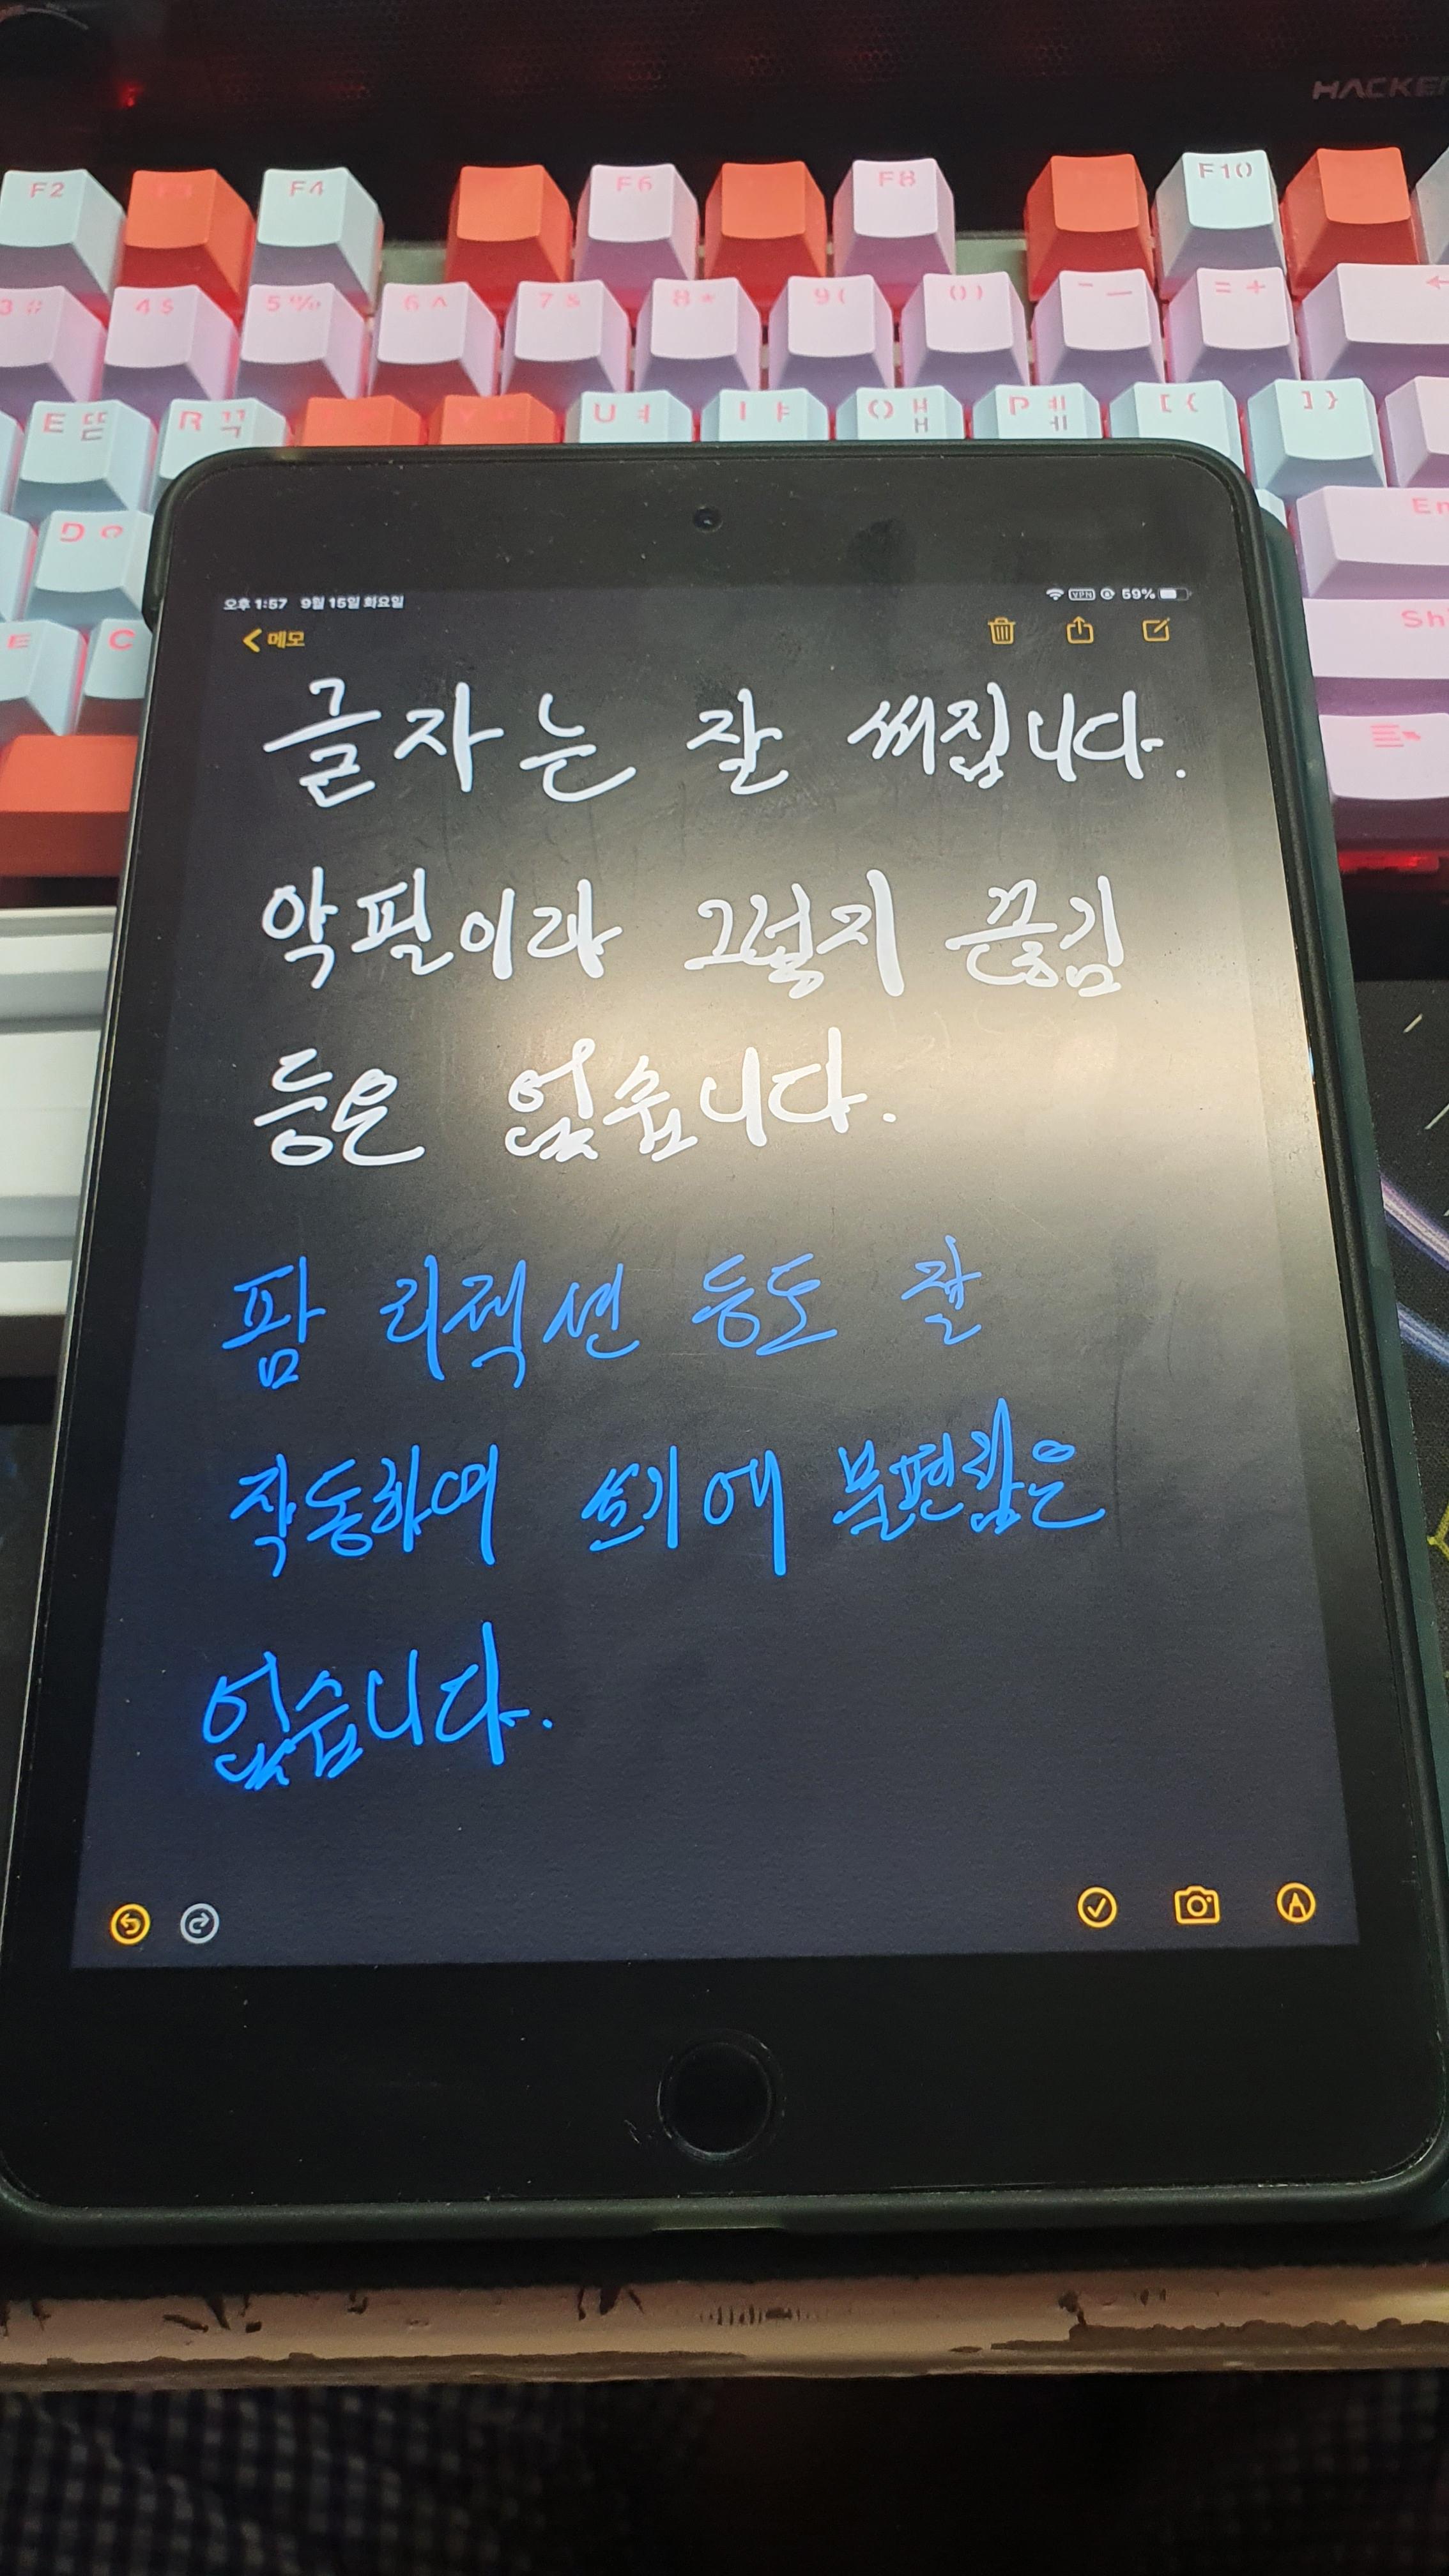 HACKE
F2 F4 F6 F8 F10
3 # 4 $ 5 % 6 ^ 7 & 8 * 9 ( 0 ) - _ = +
E ㄸ ㄷ R ㄲ ㄱ U ㅕ I ㅑ O ㅒ ㅐ P ㅖ ㅔ [ { ] }
D ㅇ En
C Sh
오후 1:57 9월 15일 화요일 VPN 59%
메모
글자는 잘 써집니다.
악필이라 그렇지 끊김
등은 없습니다.
팜 리젝션 등도 잘
작동하여 쓰기에 불편함은
없습니다.